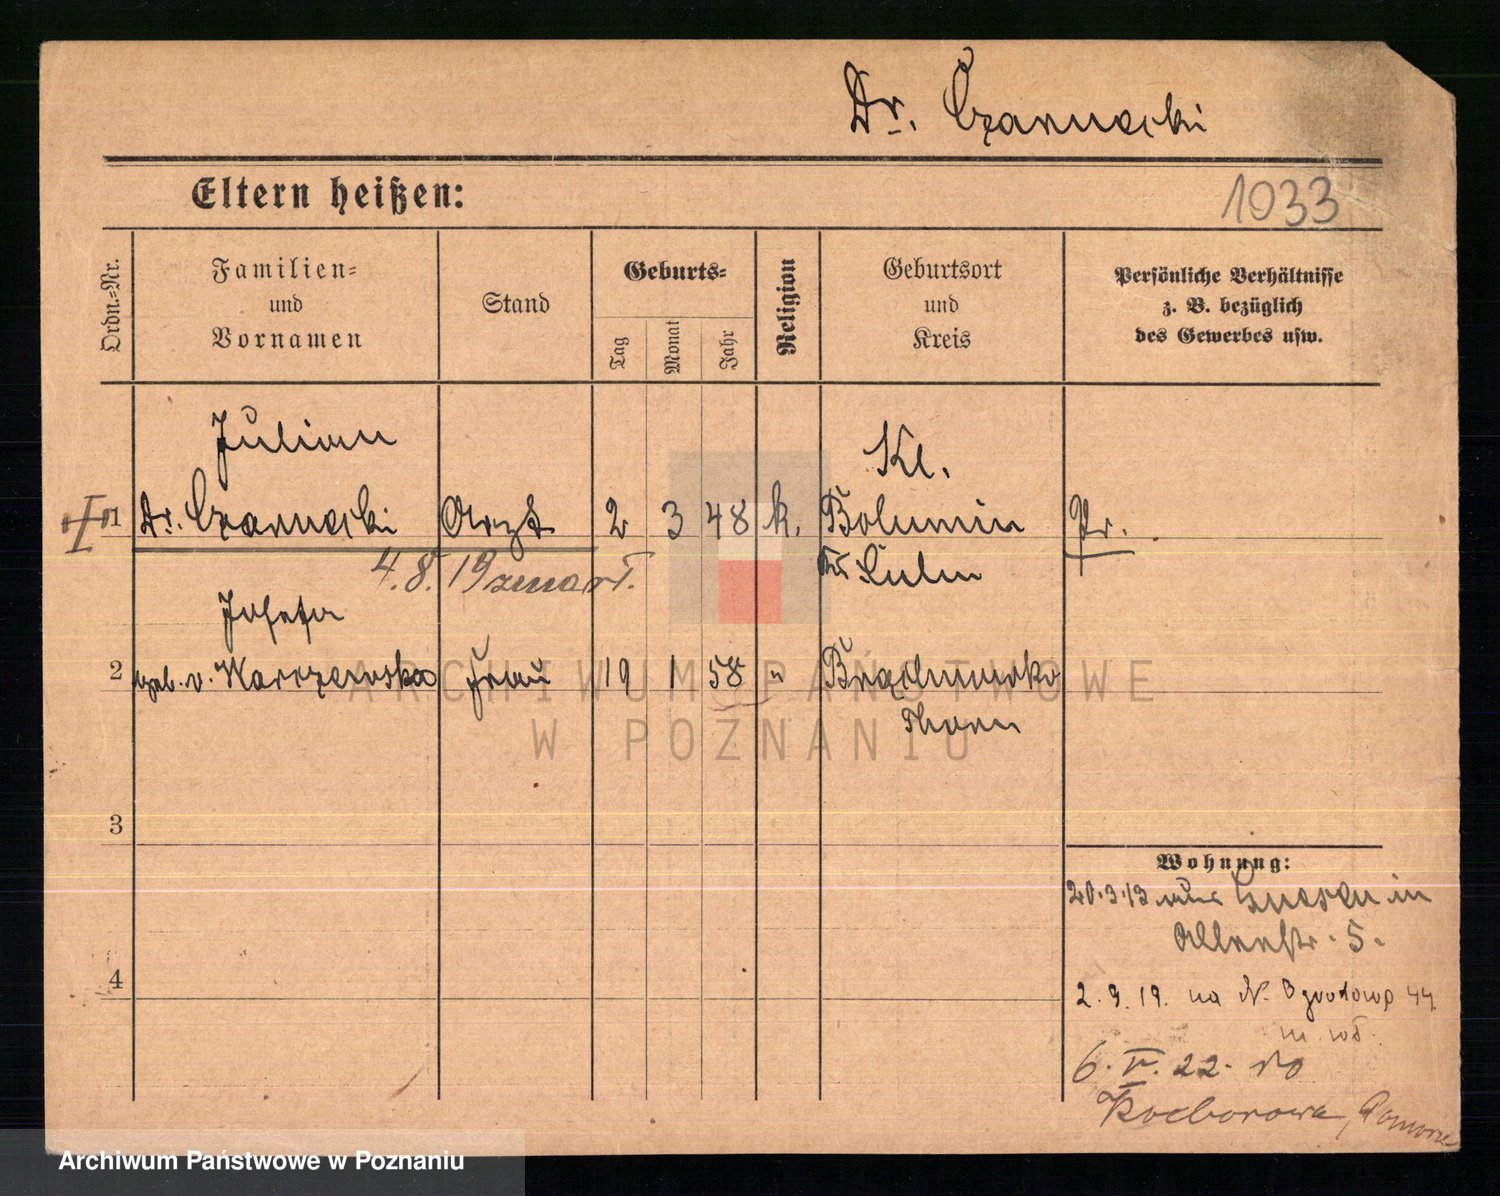 Dr. Czarnecki
Eltern heißen:
1033
Ordn.=Nr.
Familien=
und
Vornamen
Stand
Geburts=
Tag
Monat
Jahr
Religion
Geburtsort
und
Kreis
Persönliche Verhältnisse
z. B. bezüglich
des Gewerbes usw.
Julian
Kl.
1 Dr. Czarnecki Arzt 2 3 48 k. Bolumin Pr.
4.8.19 zmarł.
Kr. Culm
Josefa
2 geb. v. Warczewska Frau 19 1 58 "
Thorn
3
4
Wohnung:
20.3.13 aus Gnesen in
Allerstr. 5.
2.9.19. na N. Ogrodową 44
6.V.22. do
Kocborowa, Pomorze
ARCHIWUM PAŃSTWOWE
W POZNANIU
Archiwum Państwowe w Poznaniu